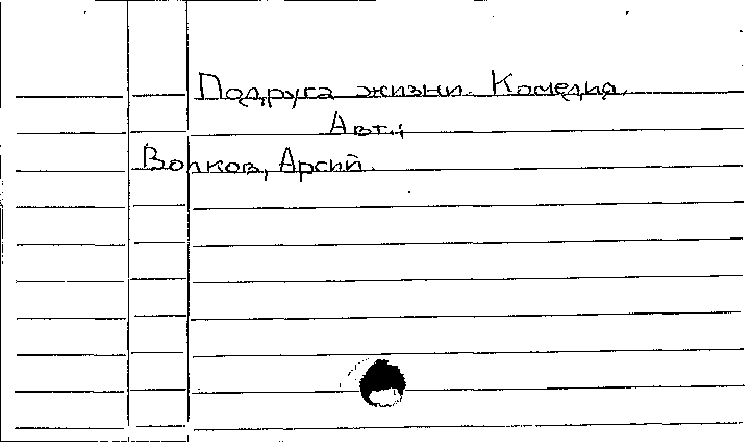 Подруга жизни. Комедия.
Авт.:
Волков, Арсий.